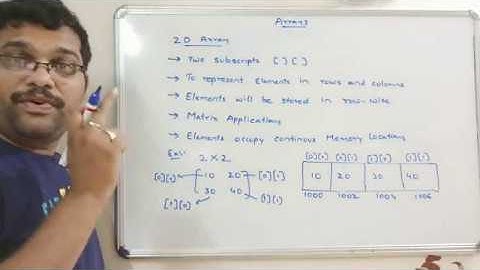 Arrays
2D Array
→ Two subscripts [ ] [ ]
→ To represent Elements in rows and columns
→ Elements will be stored in row-wise
→ Matrix Applications
→ Elements occupy continous Memory Locations
Ex:- 2 x 2
[0][0] [0][1] [1][0] [1][1]
[0][0] 10 20 [0][1]
10 20 30 40
30 40
[1][0] [1][1]
1000 1002 1004 1006